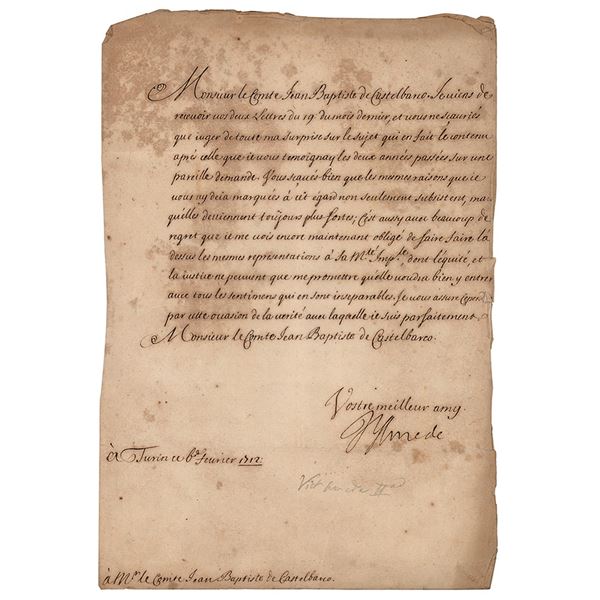 Monsieur le Comte Jean Baptiste de Castelbarco. Je viens de
recevoir vos deux Lettres du 19. du mois dernier, et vous ne sçauriés
que iuger de toute ma surprise sur le sujet qui en fait le contenu
aprés celle que ie vous temoignay les deux années passées sur une
pareille demande. Vous sçavés bien que les mesmes raisons que ie
vous ny deia marquées à cét égard non seulement subsistent, ma
qu'elles deviennent toûjours plus fortes; C'est aussy avec beaucoup de
regret que ie me vois encore maintenant obligé de faire faire là
dessus les mesmes representations à sa M.té Imp.le dont l'équité, et
la justice ne peuvent que me promettre qu'elle voudra bien y entrer
avec tous les sentimens qui en sont inseparables. Je vous assure
par cette occasion de la verité avec laquelle ie suis parfaitement
Monsieur le Comte Jean Baptiste de Castelbarco.
Vostre meilleur amy.
VAmede
à Turin ce 6.e fevrier 1712.
II
à M.r le Comte Jean Baptiste de Castelbarco.